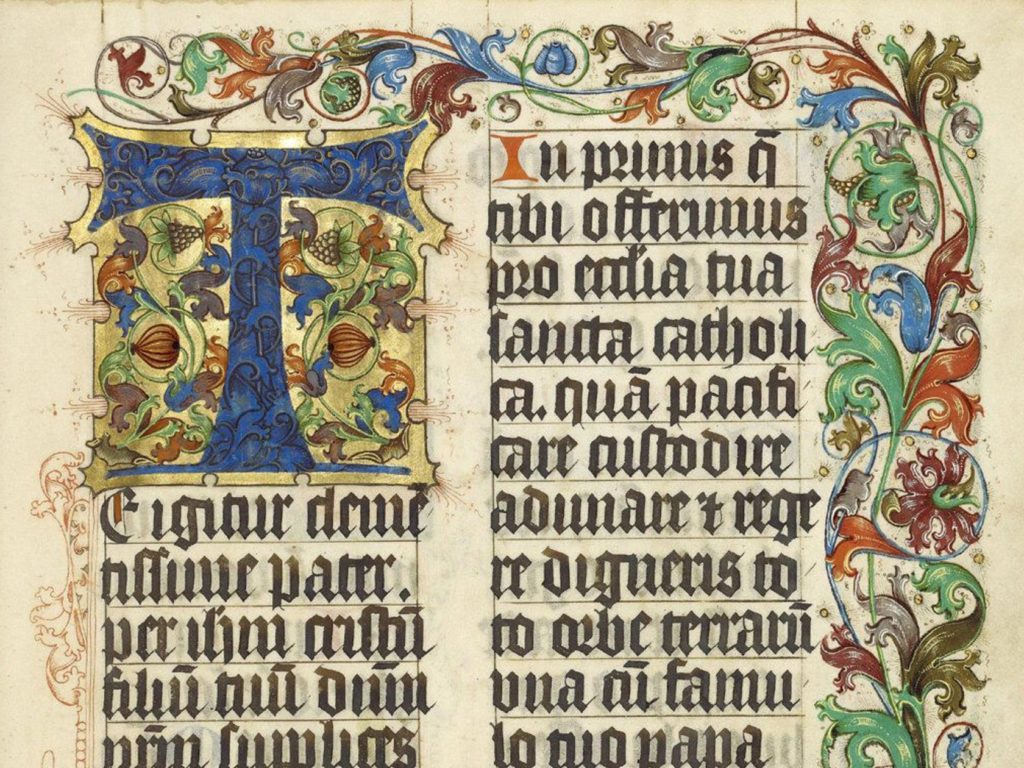 TE igitur clemē
tissime pater.
per ihm cristū
filiū tuū dnm
nrm supplices
In primis q̄
tibi offerimus
pro ecclia tua
sancta catholi
ca. quā pacifi
care custodire
adunare ⁊ rege
re digneris to
to orbe terrarū
vna cū famu
lo tuo papa